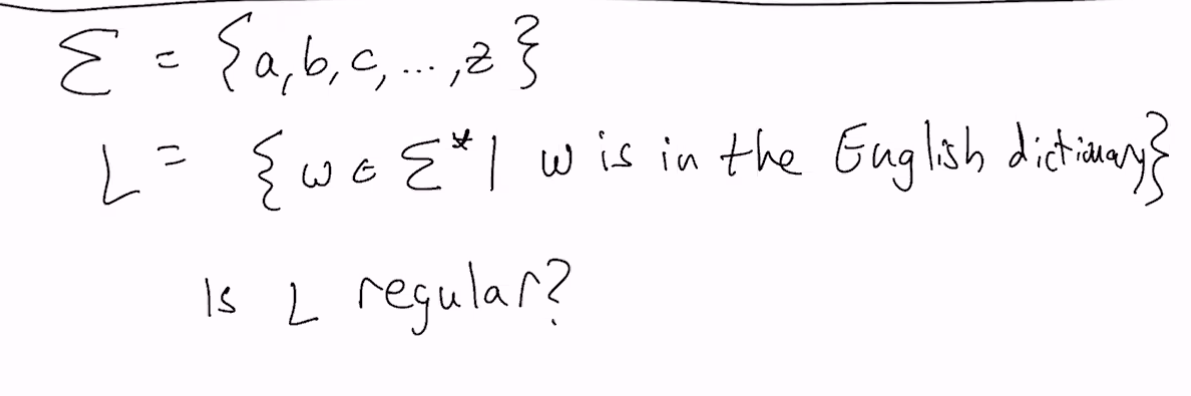 Σ = {a,b,c,...,z}
L = {w ∈ Σ* | w is in the English dictionary}
Is L regular?